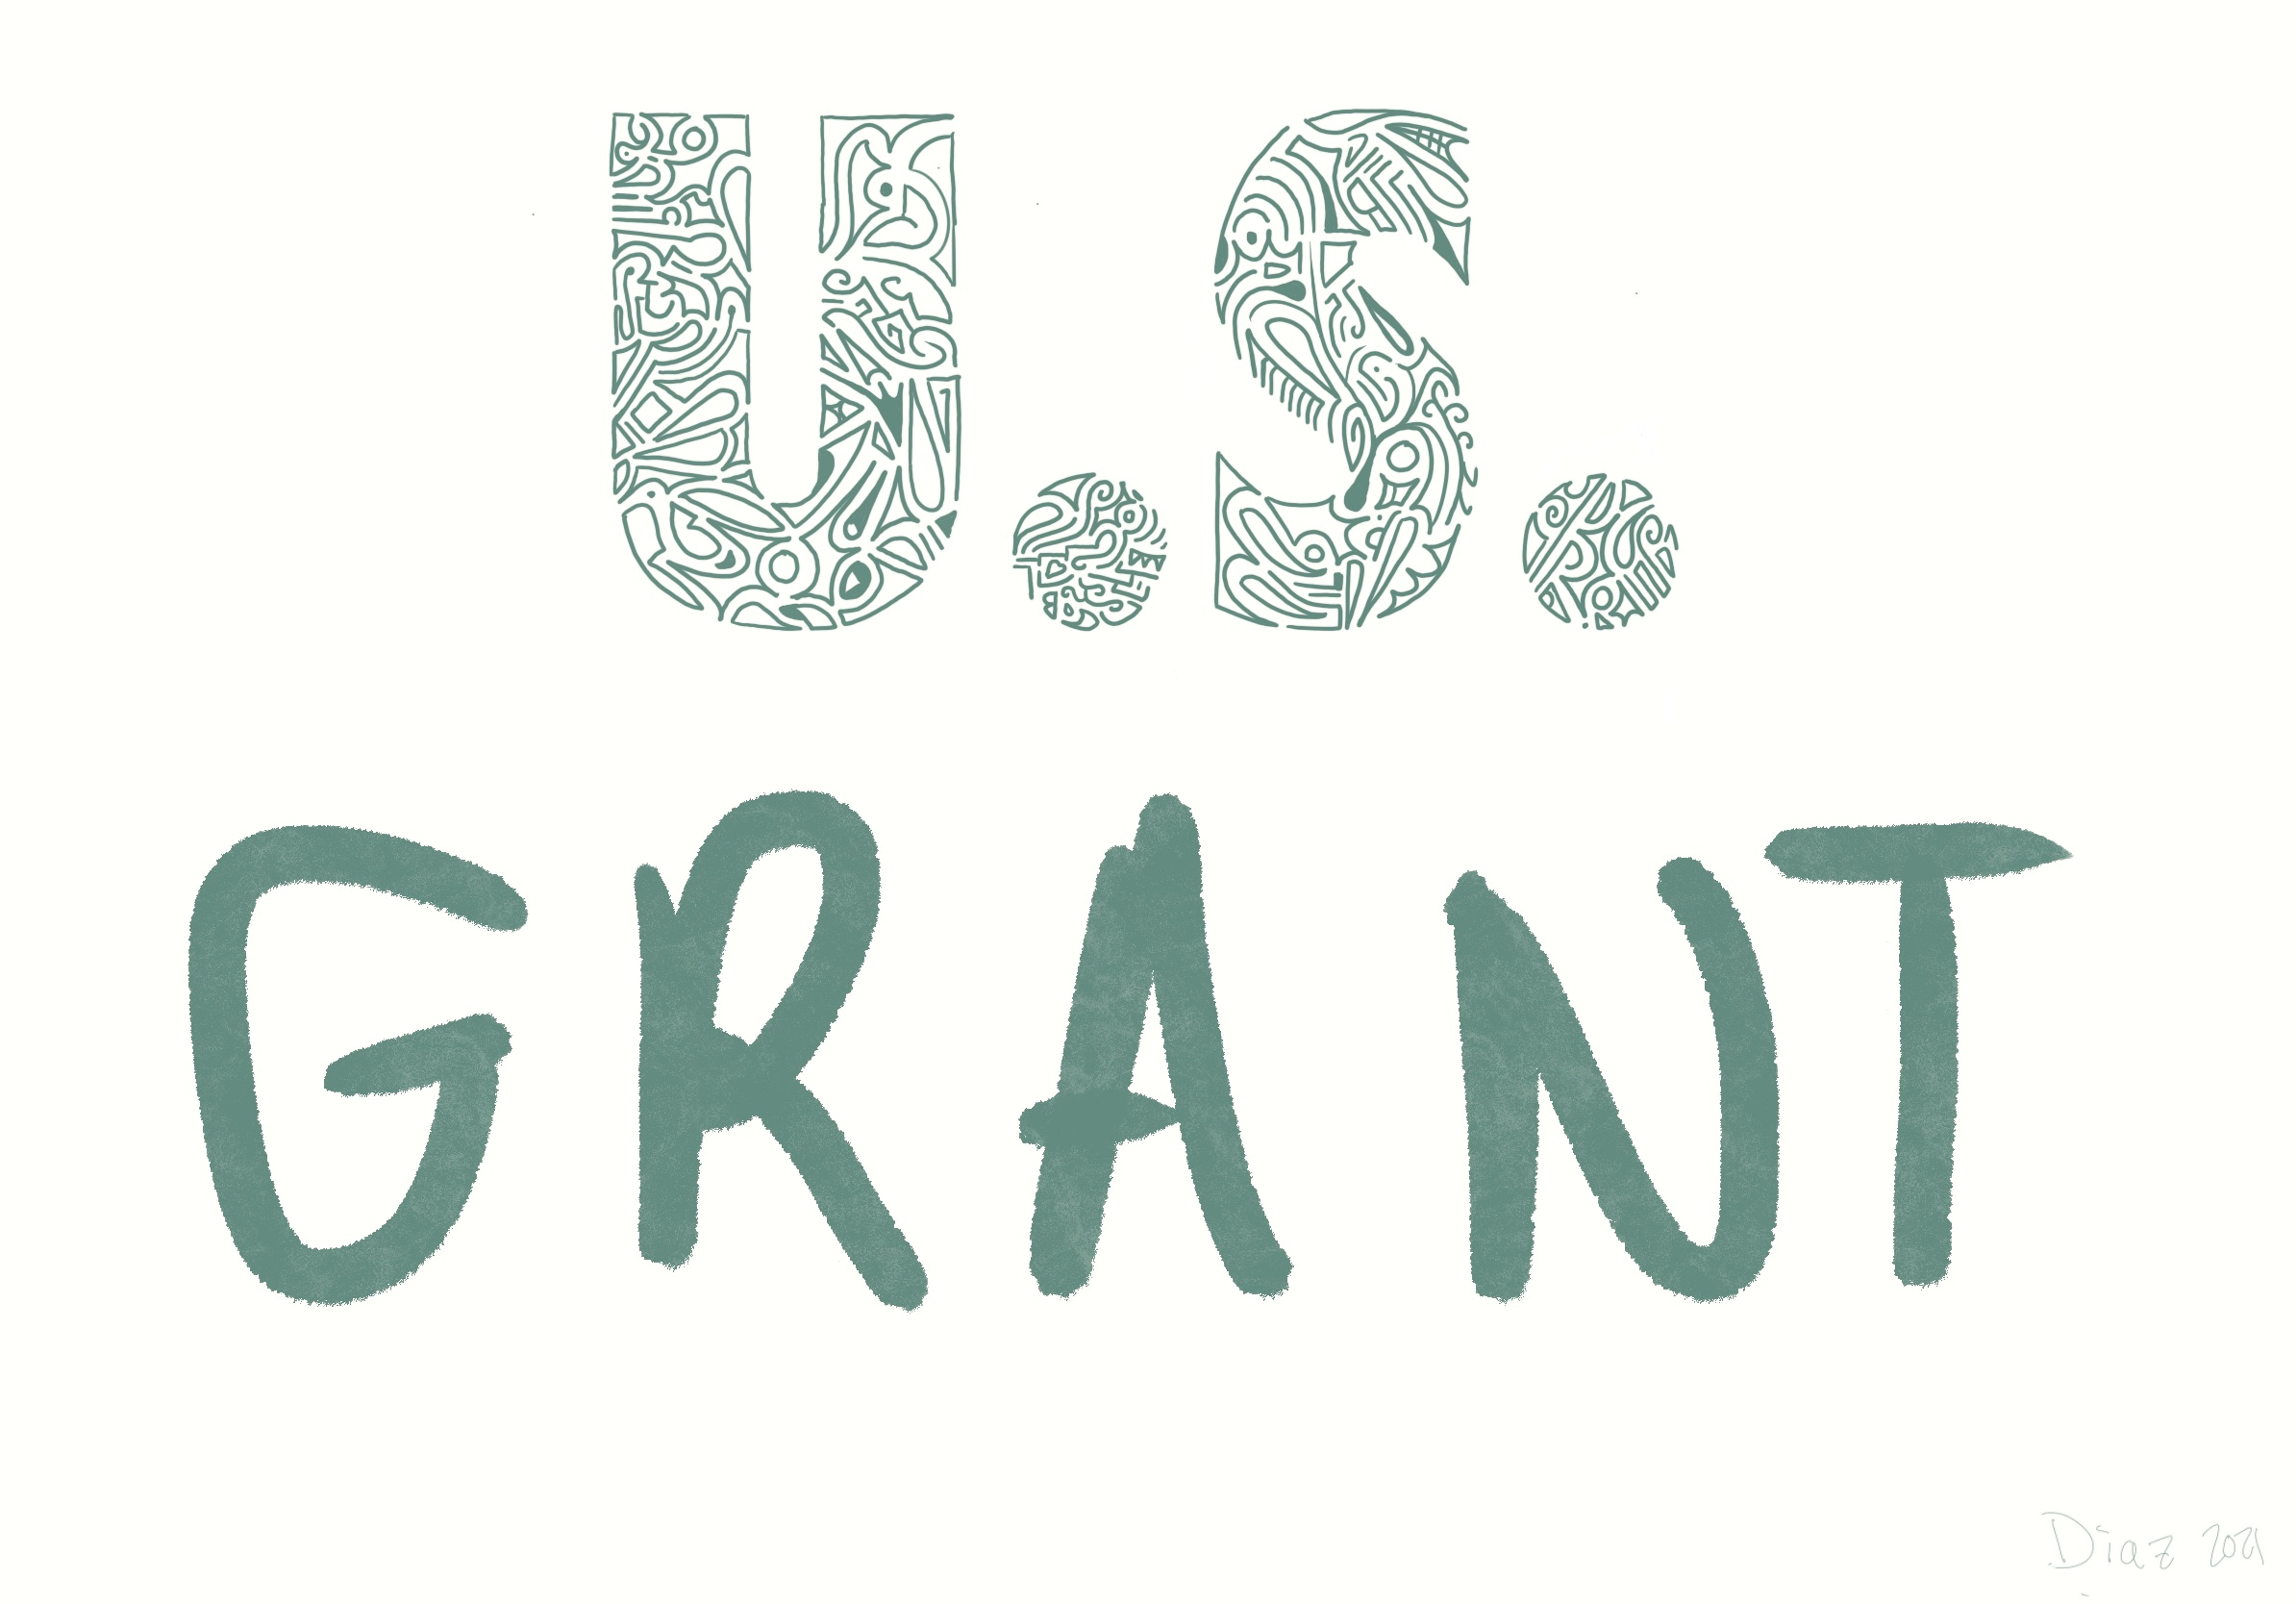 U.S.
GRANT
Diaz 2021